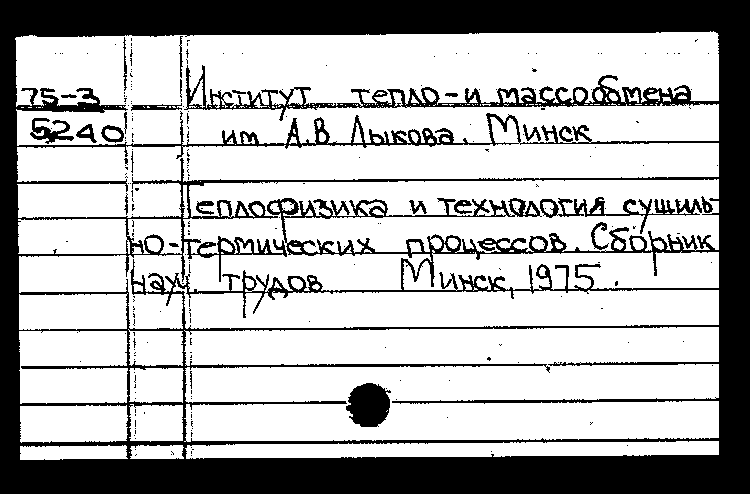 75-3 Институт тепло-и массообмена
5240 им. А.В. Лыкова. Минск
Теплофизика и технология сушиль-
но-термических процессов. Сборник
науч. трудов Минск, 1975.